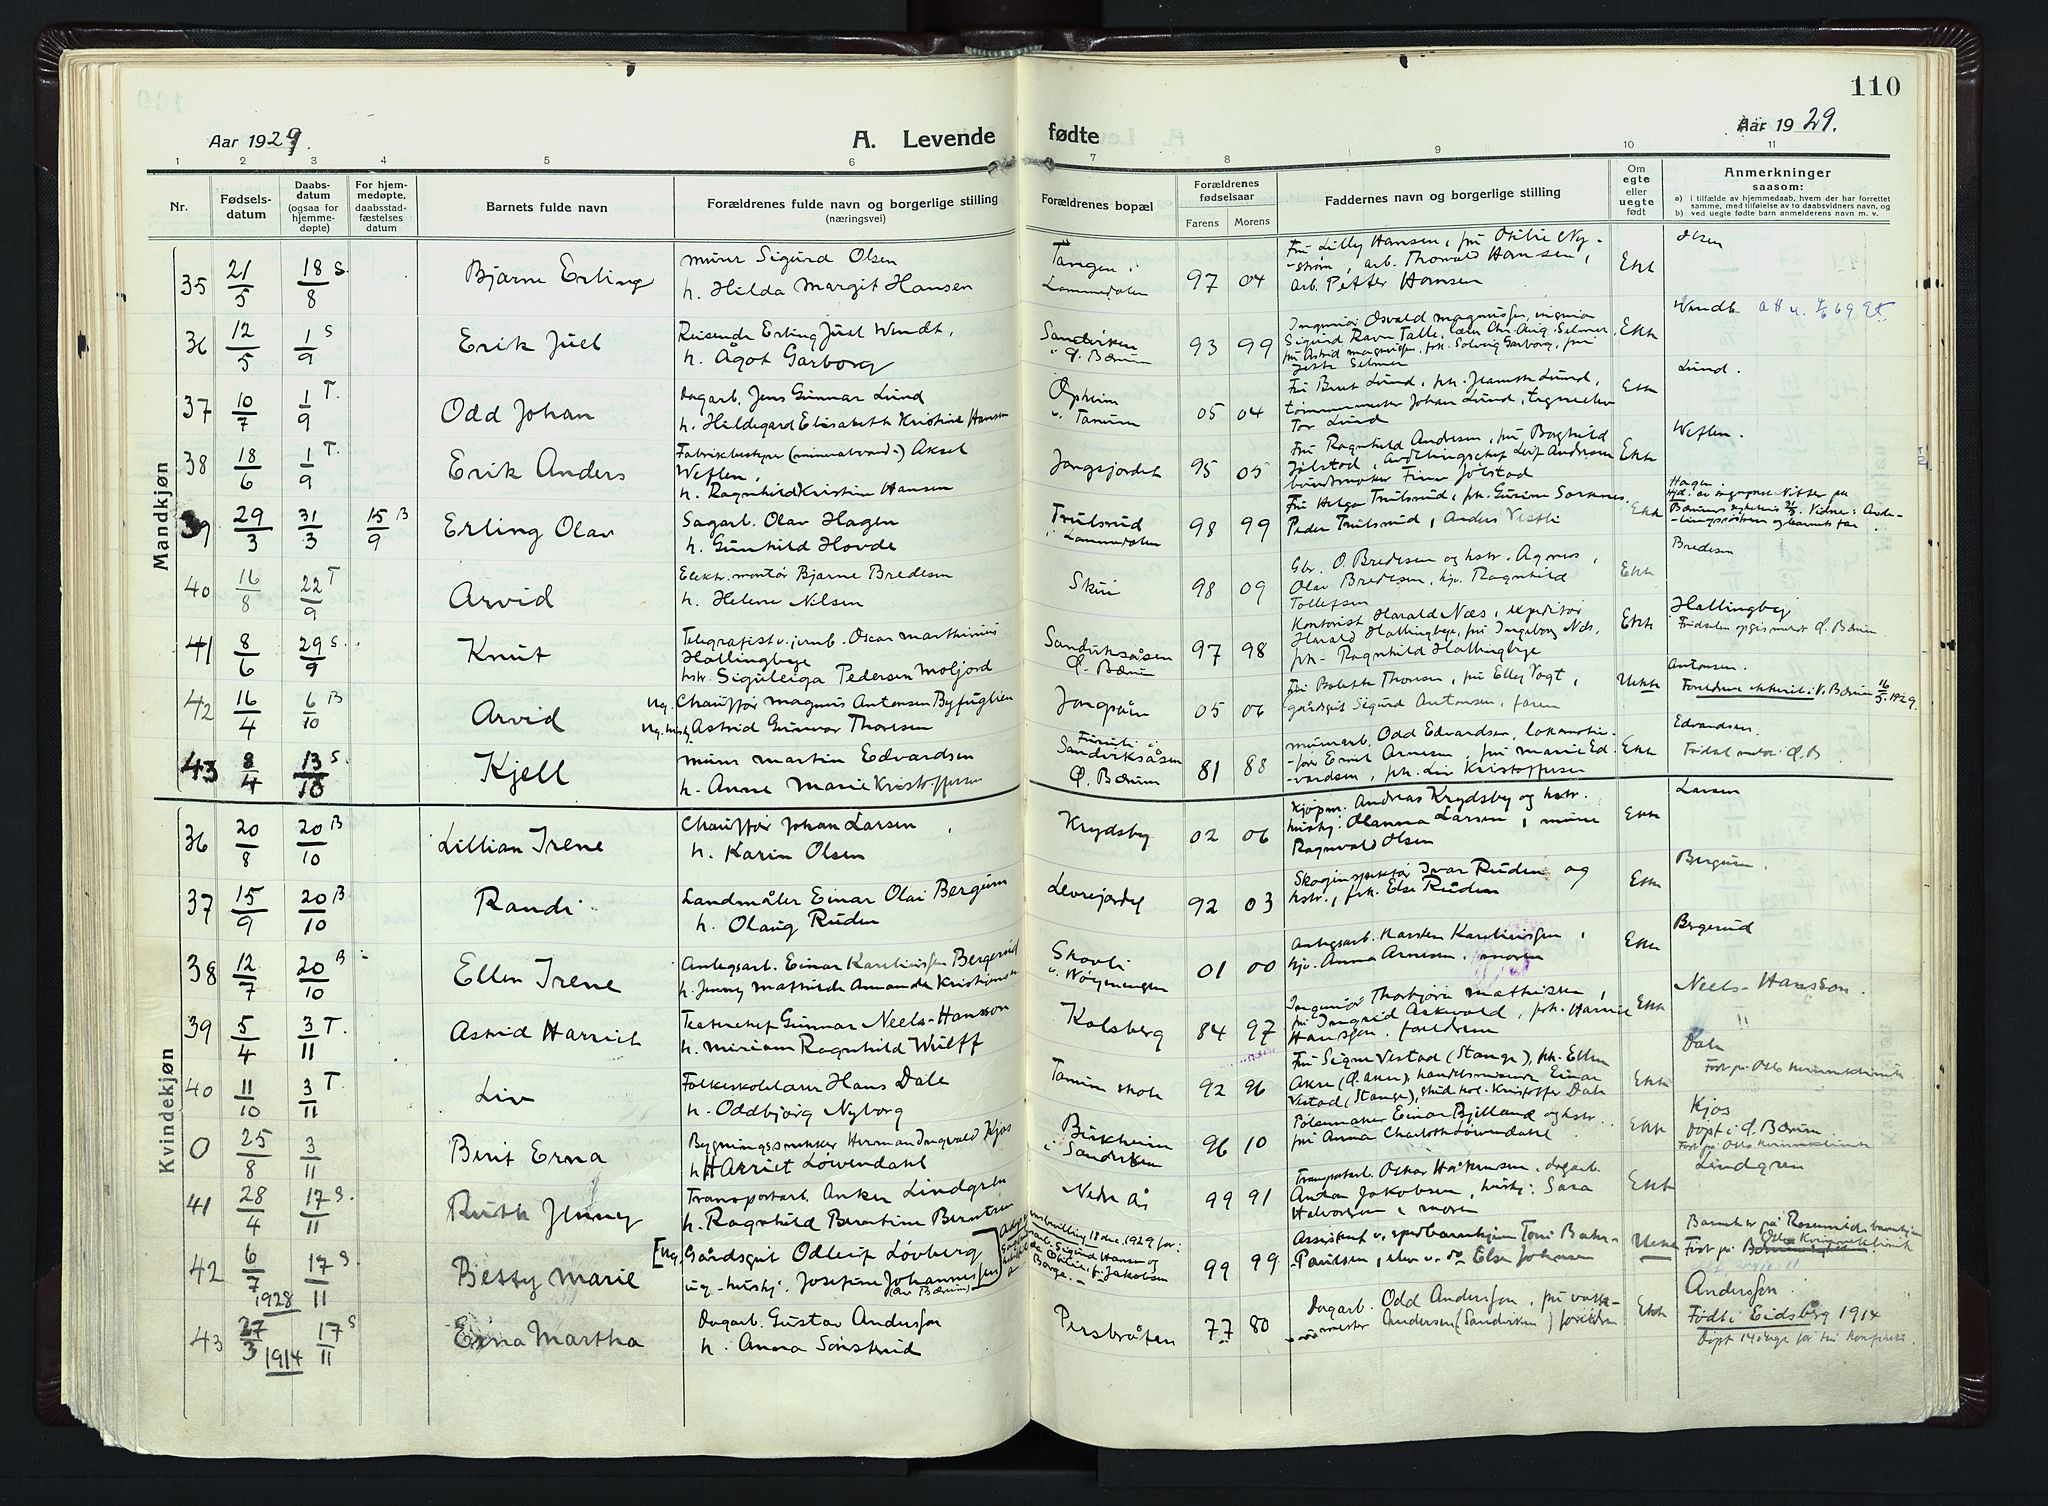 110
Aar 1929.
A. Levende fødte
Aar 1929.
1 2 3 4 5 6 7 8 9 10 11
Nr.
Fødsels-
datum
Daabs-
datum
(ogsaa for
hjemme-
døpte)
For hjem-
medøpte,
daabsstad-
fæstelses
datum
Barnets fulde navn
Forældrenes fulde navn og borgerlige stilling
(næringsvei)
Forældrenes bopæl
Forældrenes
fødselsaar
Farens Morens
Faddernes navn og borgerlige stilling
Om
egte
eller
uegte
født
Anmerkninger
saasom:
a) i tilfælde av hjemmedaab, hvem der har forrettet
samme, med tilføielse av to daabsvidners navn, og
b) ved uegte fødte barn anmelderens navn m. v.
Mandkjøn
35 21/5 18/8 S. Bjarne Erling
murer Sigurd Olsen
h. Hilda Margit Hansen
Tangen i
Lommedalen
97 04
Fru Lilly Hansen, fru Otilie Ny-
-strøm, arb. Thorvald Hansen,
arb. Petter Hansen
Ekte
Olsen
36 12/5 1/9 S Erik Juel
Reisende Erling Juel Wendt,
h. Ågot Garborg
Sandviken
Ø. Bærum
93 99
Ingeniør Osvald Magnussen, ingeniør
Sigurd Ravn Talle, Chr. Aug. Selmer,
fru Astrid Magnussen, frk. Solveig Garborg, fru
Selmer
Ekte
Wendt
37 10/7 1/9 T. Odd Johan
Dagarb. Jens Gunnar Lund
h. Hildegard Elisabeth Kristine Hansen
Øpheim
v. Tanum
05 04
Fru Berit Lund, frk. Jeanette Lund,
tømmermester Johan Lund,
Tor Lund
Ekte
Lund.
38 18/6 1/9 T. Erik Anders
Fabrikbestyrer (mineralvand-) Aksel
Weflen,
h. Ragnhild Kristine Hansen
Jongsjordet
95 05
Fru Ragnhild Andresen, fru Borghild
Jølstad, Avdelingschef Leif Andresen
buntmaker Finn Jølstad
Ekte
Weflen.
39 29/3 31/3 15/9 B Erling Olav
Sagarb. Olav Hagen
h. Gunhild Hovde
Trulsrud
i Lommedalen
98 99
Fru Helga Trulsrud, frk. Gurine Sørknes,
Peder Trulsrud, Anders Vestli
Ekte
Hagen.
40 16/8 22/9 T Arvid
Elektr. montør Bjarne Bredesen
h. Helene Nilsen
Skui
98 09
Gbr. O. Bredesen og hstr. Agnes,
Olav Bredesen, frk. Ragnhild
Tollefsen
Ekte
Bredesen
41 8/6 29/9 S. Knut
Telegrafist v. jernb. Oscar Marthinius
Hallingbye
hstr. Siguleiga Pedersen Moljord
Sandviksåsen
Ø. Bærum
97 98
Kontorist Harald Næs, expeditør
Harald Hallingbye, fru Ingeborg Næs,
frk. Ragnhild Hallingbye
Ekte
Hallingbye
Fødselen opgis meldt Ø. Bærum
42 16/4 6/10 B Arvid
Ug. Chauffør Magnus Antonsen Byfuglien
Ug. hushj. Astrid Gunvor Thoresen
Jongsåsen
05 06
Fru Bolette Thoresen, fru Elley Vogt,
gårdsgut Sigurd Antonsen, faren
Uekte
Antonsen.
Foreldrene ekteviet i V. Bærum 16/5 1929.
43 8/4 13/10 S. Kjell
murer Martin Edvardsen
h. Anne Marie Kristoffersen
Furuli i
Sandviksåsen
Ø. Bærum
81 88
murarb. Odd Edvardsen, lokomotiv-
-fører Emil Arnesen, fru Marie Ed-
-vardsen, frk. Liv Kristoffersen
Ekte
Edvardsen.
Fødsel meldt Ø. B
Kvindekjøn
36 20/8 20/10 B Lillian Irene
Chauffør Johan Larsen
h. Karin Olsen
Krydsby
02 06
Kjøpm. Andreas Krydsby og hstr.
hushj. Olanna Larsen, murer
Ragnvald Olsen
Ekte
Larsen
37 15/9 20/10 B Randi
Landmåler Einar Olai Bergum
h. Olaug Ruden
Levrejordet
92 03
Skoginspektør Ivar Ruden og
hstr., frk. Else Ruden
Ekte
Bergum.
38 12/7 20/10 B Ellen Irene
Anlegsarb. Einar Karelieussen Bergerud
h. Jenny Mathilde Amanda Kristiansen
Skovli
v. Wøyenengen
01 00
Anlegsarb. Karsten Karelieussen,
frk. Anna Arnesen, moren
Ekte
Bergerud
39 5/4 3/11 T. Astrid Harriet
Teaterchef Gunnar Neels-Hansson
h. Miriam Ragnhild Wulff
Kolsberg
84 97
Ingeniør Thorbjørn Mathiesen,
fru Ingrid Askvold, frk. Harriet
Hansson. foreldrene
Ekte
Neels-Hansson.
40 11/10 3/11 T. Liv
Folkeskolelærer Hans Dale
h. Oddbjørg Nyborg
Tanum skole
92 96
Fru Signe Vestad (Stange), frk. Ellen
Aker (Ø. Aker), handelsreisende Einar
Vestad (Stange), stud. real. Kristoffer Dale
Ekte
Dale
Født på Oslo Kvinneklinik
0 25/8 3/11 Berit Erna
Bygningssnekker Herman Ingvald Kjos
h. Harriet Løvendahl
Birkheim
i Sandviken
96 10
Pølsemaker Einar Bjelland og hstr.
fru Anna Charlotte Løvendahl
Ekte
Kjos
Døpt i Ø. Bærum.
Født på Oslo Kvinneklinik
41 28/4 17/11 S. Ruth Jenny
Transportarb. Anker Lindgren
h. Ragnhild Berntine Berntsen
Nedre Å
99 91
Transportarb. Oskar Håkensen, dagarb.
Anton Jakobsen, hushj. Sara
Halvorsen, moren
Ekte
Lindgren
42 6/7 1928 17/11 S. Betty Marie
[Ug. Gårdsgut Odleif Løvberg
ug. hushj. Josefine Johannessen
(Ø. Bærum)
99 99
Assistent v. spedbarnhjem Toni Baker-
-Paulsen, elev v. do Else Johnsen
Uekte
Barnet er på Rosenlide barnehjem
Født på Oslo Kvinneklinik
43 27/3 1914 17/11 S Erna Martha
Dagarb. Gustav Anderssen
h. Anna Sønsterud
Persbråten
77 80
Dagarb. Odd Anderssen, fru vakt-
mester Andersen (Sandviken) foreldrene
Ekte
Anderssen.
Født i Eidsberg 1914
Døpt 14 dage før sin konfirm.